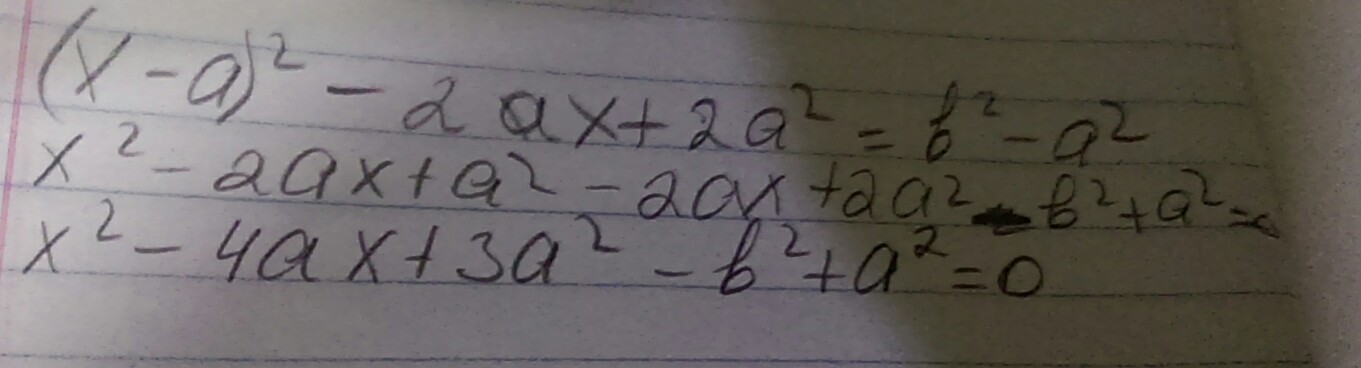 (x-a)² - 2ax+2a² = b² - a²
x² - 2ax+a² - 2ax+2a² - b²+a² =
x² - 4ax+3a² - b²+a² = 0